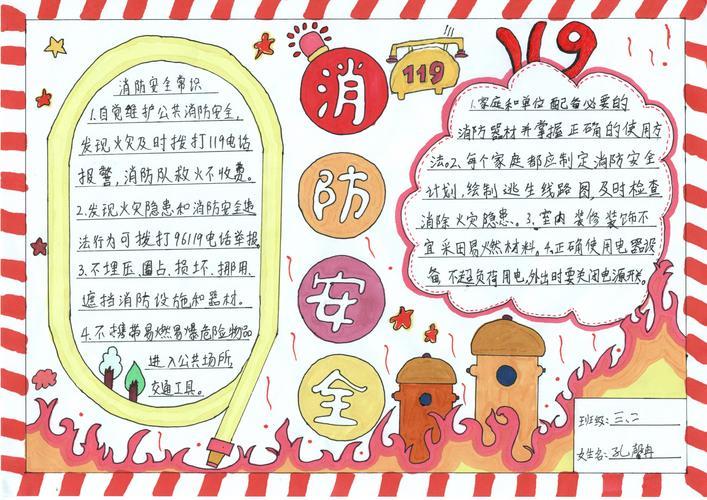 消防安全常识
1.自觉维护公共消防安全,
发现火灾及时拨打119电话
报警,消防队救火不收费。
2.发现火灾隐患和消防安全违
法行为可拨打96119电话举报。
3.不埋压、圈占、损坏、挪用、
遮挡消防设施和器材。
4.不携带易燃易爆危险物品
进入公共场所,
交通工具。
消
防
安
全
119
119
1.家庭和单位配备必要的
消防器材并掌握正确的使用方
法。2、每个家庭都应制定消防安全
计划,绘制逃生线路图,及时检查
消除火灾隐患。3、室内装修装饰不
宜采用易燃材料。4.正确使用电器设
备,不超负荷用电,外出时要关闭电源开关。
班级:三、二
姓名:孔馨冉